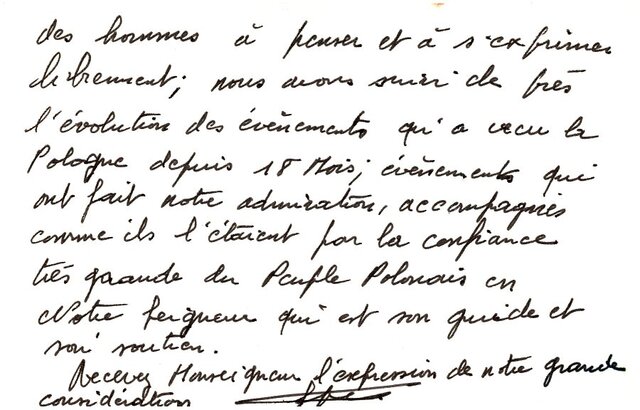 des hommes à penser et à s'exprimer
librement; nous avons suivi de près
l'évolution des événements qu'a vécu la
Pologne depuis 18 Mois; événements qui
ont fait notre admiration, accompagnés
comme ils l'étaient par la confiance
très grande du Peuple Polonais en
Notre Seigneur qui est son guide et
son soutien.
Recevez Monseigneur l'expression de notre grande
considération